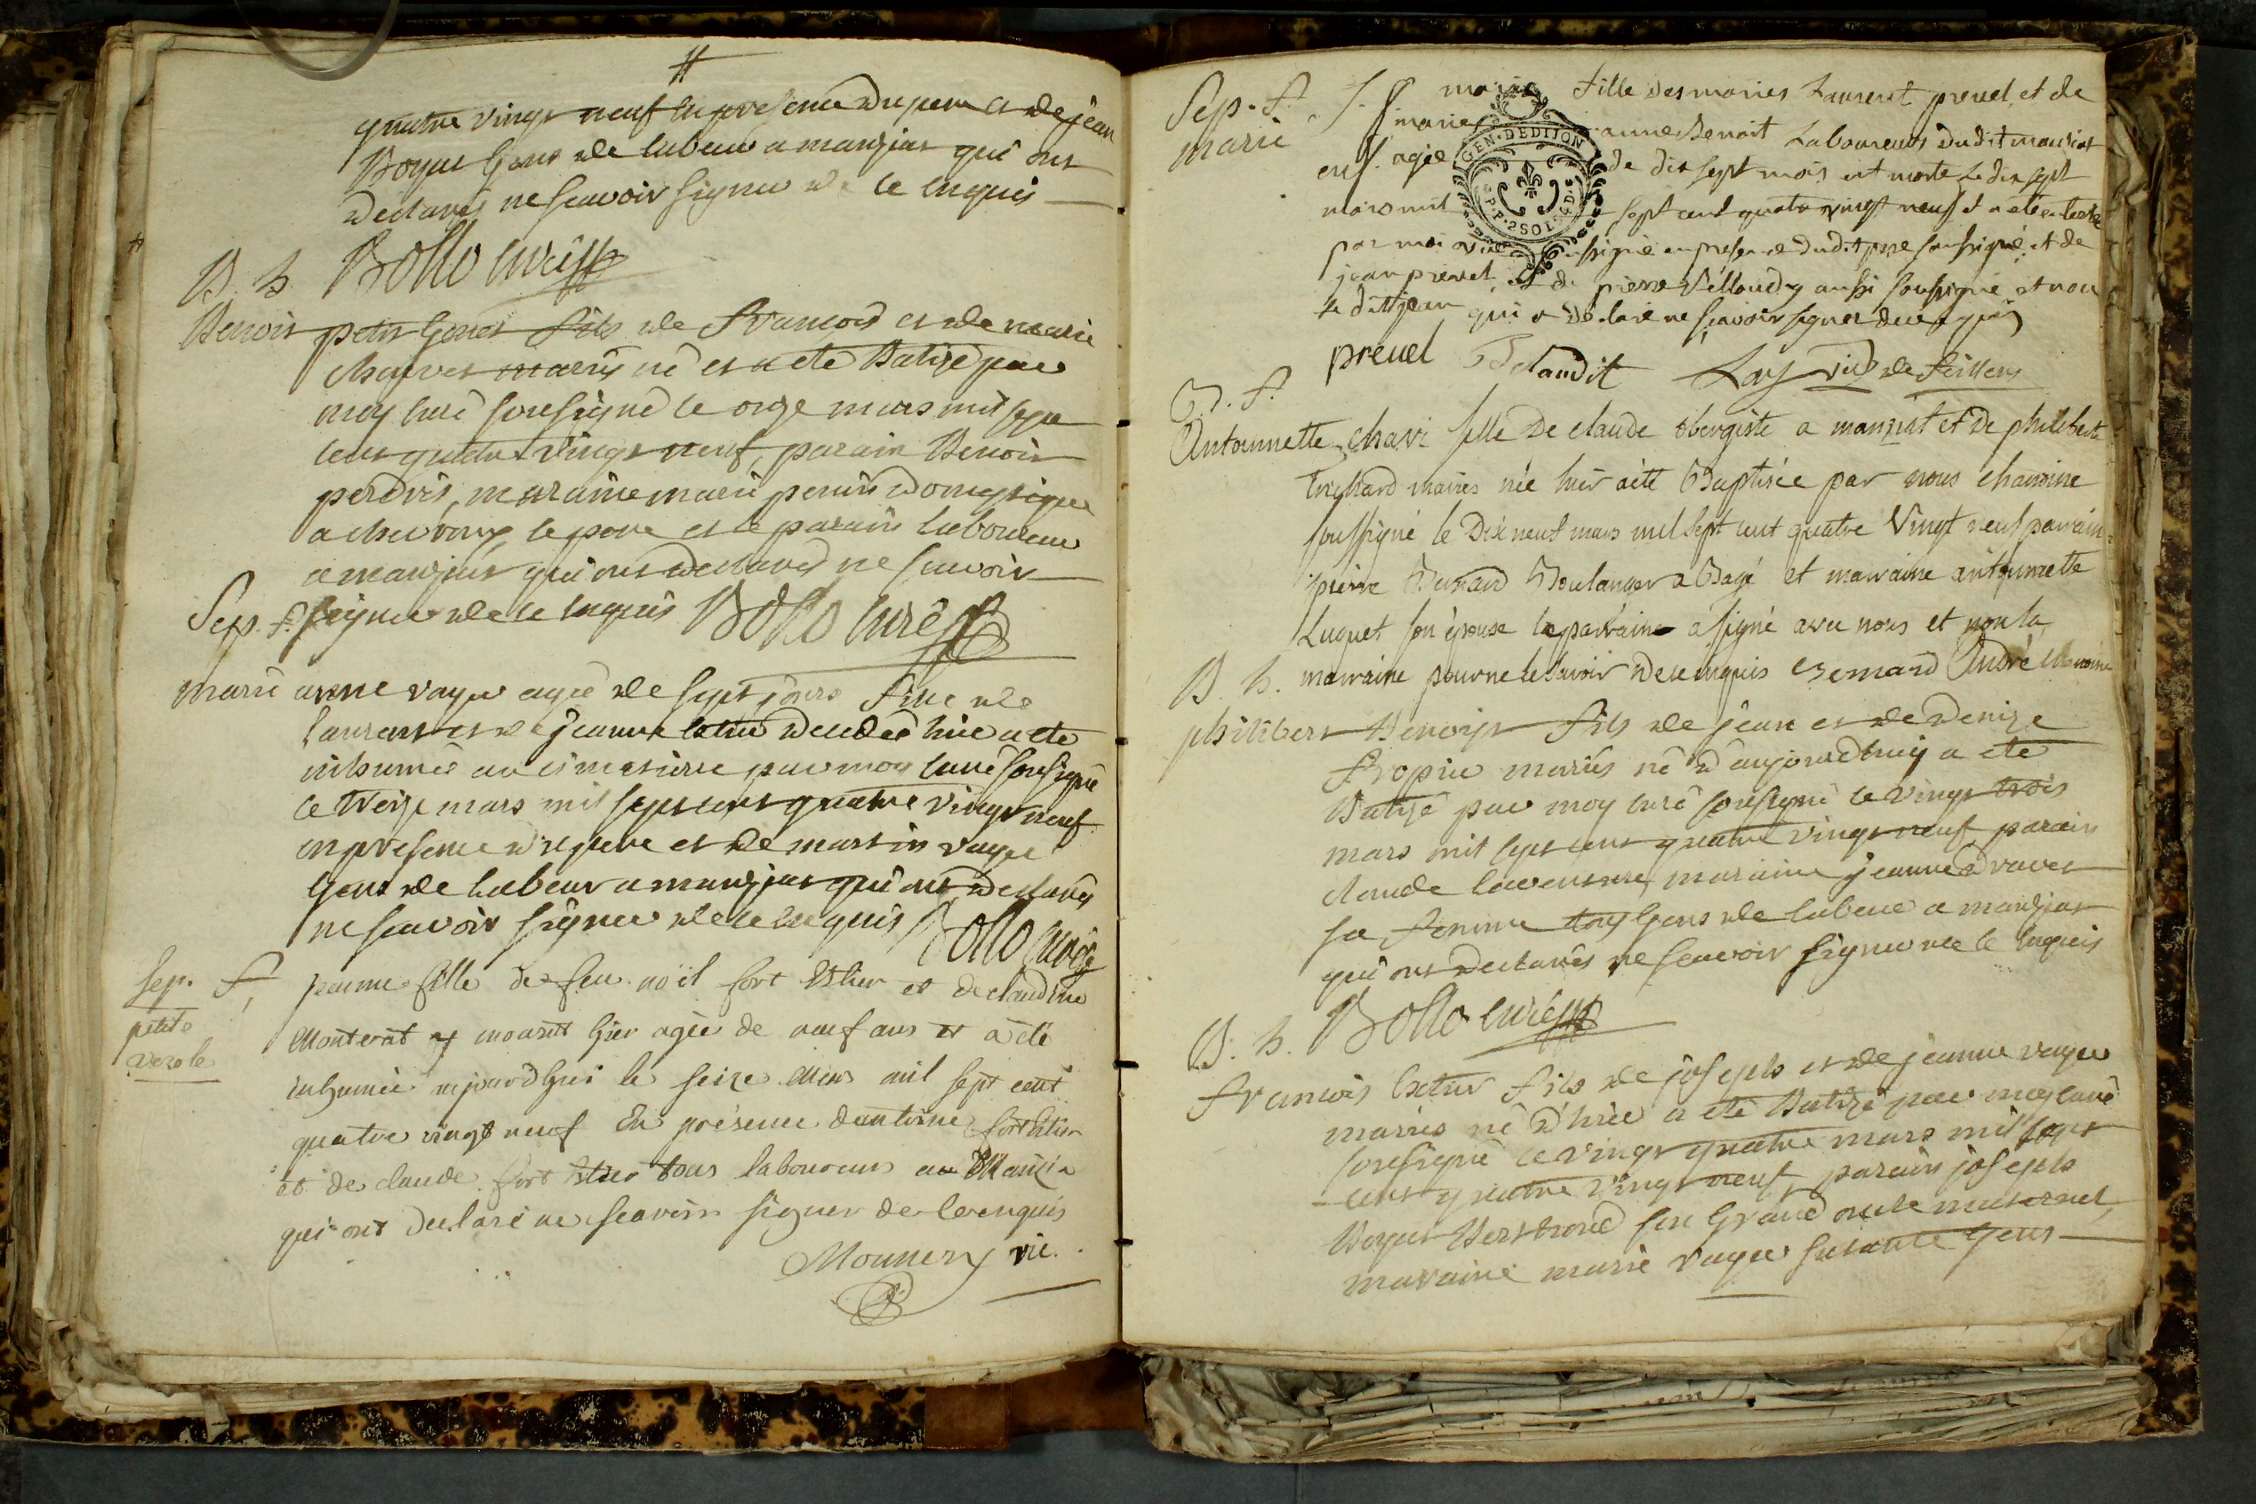 quatre vingt neuf en presence du pere et de jean
Boyat gens de labeur a manziat qui ont
declarés ne scavoir signer de ce enquis
B. h. Bollo curé
Benoit petit fils de francois et de marie
chavet mariés né et a eté Batizé par
moy curé sousigné le onze mars mil sept
cent quatre vingt neuf, parain Benoit
perdrix, maraine marie domestique
a le pere et le parain laboureur
a manziat qui ont declarés ne scavoir
Sep. f. signer de ce enquis Bollo curé
marie anne voyer agée de sept jours fille de
laurent et de jeanne decedée hier a ete
inhumée au cimetierre par moy curé sousigné
le treize mars mil sept cent quatre vingt neuf
en presence du pere et de martin voyer
gens de labeur a manziat qui ont declarés
ne scavoir signer de ce enquis Bollo curé
Sep. f. jeanne fille de feu noël fort et de claudine
petite Monterat y mourut hier agée de neuf ans et a été
verole inhumée aujourdhui le seize mars mil sept cent
quatre vingt neuf En présence dantoine
et de claude fort tous laboureurs au
qui ont declaré ne scavoir signer de ce enquis
Monnery vic.
Sep. f. marie fille des mariés Laurent prevel et de
marie marie anne Benoit Laboureurs dudit manziat
agée de dix sept mois est morte le dix sept
mars mil sept cent quatre vingt neuf et a eté enterée
par moi vic soussigné en presence dudit pere soussigné et de
jean prevel, et de pierre aussi soussigné et non
le dit jean qui a declaré ne scavoir signer de ce enquis
GEN. DE DIJON
P.P. 2 SOLS
prevel vic de feillens
B. f.
Antoinette chavi fille De claude obergiste a manziat et de philiberte
mariés née hier a été Baptisée par nous chanoine
soussigné le Dixneuf mars mil sept cent quatre Vingt neuf parain
pierre Bernard Boulanger a Bagé et marraine antoinette
Luquet son épouse le parrain a signé avec nous et non la
B. h. marraine pour ne le savoir De ce enquis Bernard André chanoine
philibert Benoist fils de jean et de denize
mariés né d'aujourdhuy a eté
Batizé par moy curé sousigné le vingt trois
mars mil sept cent quatre vingt neuf parain
claude maraine jeanne
sa femme tous gens de labeur a manziat
qui ont declarés ne scavoir signer de ce enquis
B. h. Bollo curé
francois fils de joseph et de jeanne voyer
mariés né d'hier a eté Batizé par moy curé
sousigné le vingt quatre mars mil sept
cent quatre vingt neuf parain joseph
son grand oncle maternel,
maraine marie voyer sa tante gens